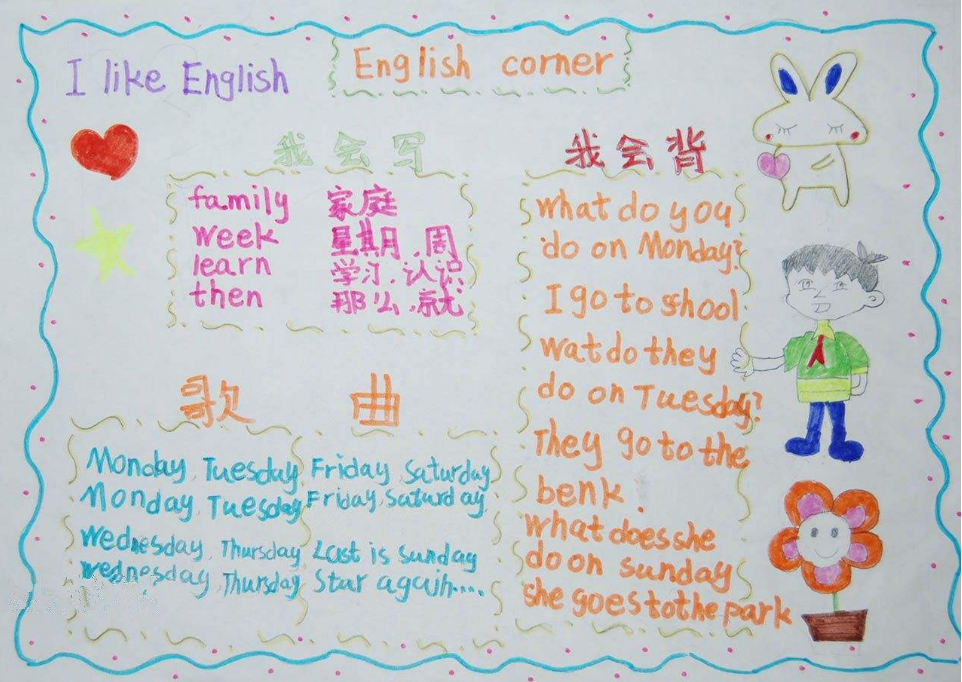 I like English
English corner
我会写
family 家庭
week 星期,周
learn 学习,认识
then 那么,就
歌曲
Monday, Tuesday, Friday Saturday
Monday, Tuesday, Friday, Saturday
Wednesday, Thursday Last is Sunday
Wednesday, Thursday Star again....
我会背
what do you
do on Monday?
I go to shool
wat do they
do on Tuesday?
They go to the
benk.
what does she
do on sunday
she goes to the park